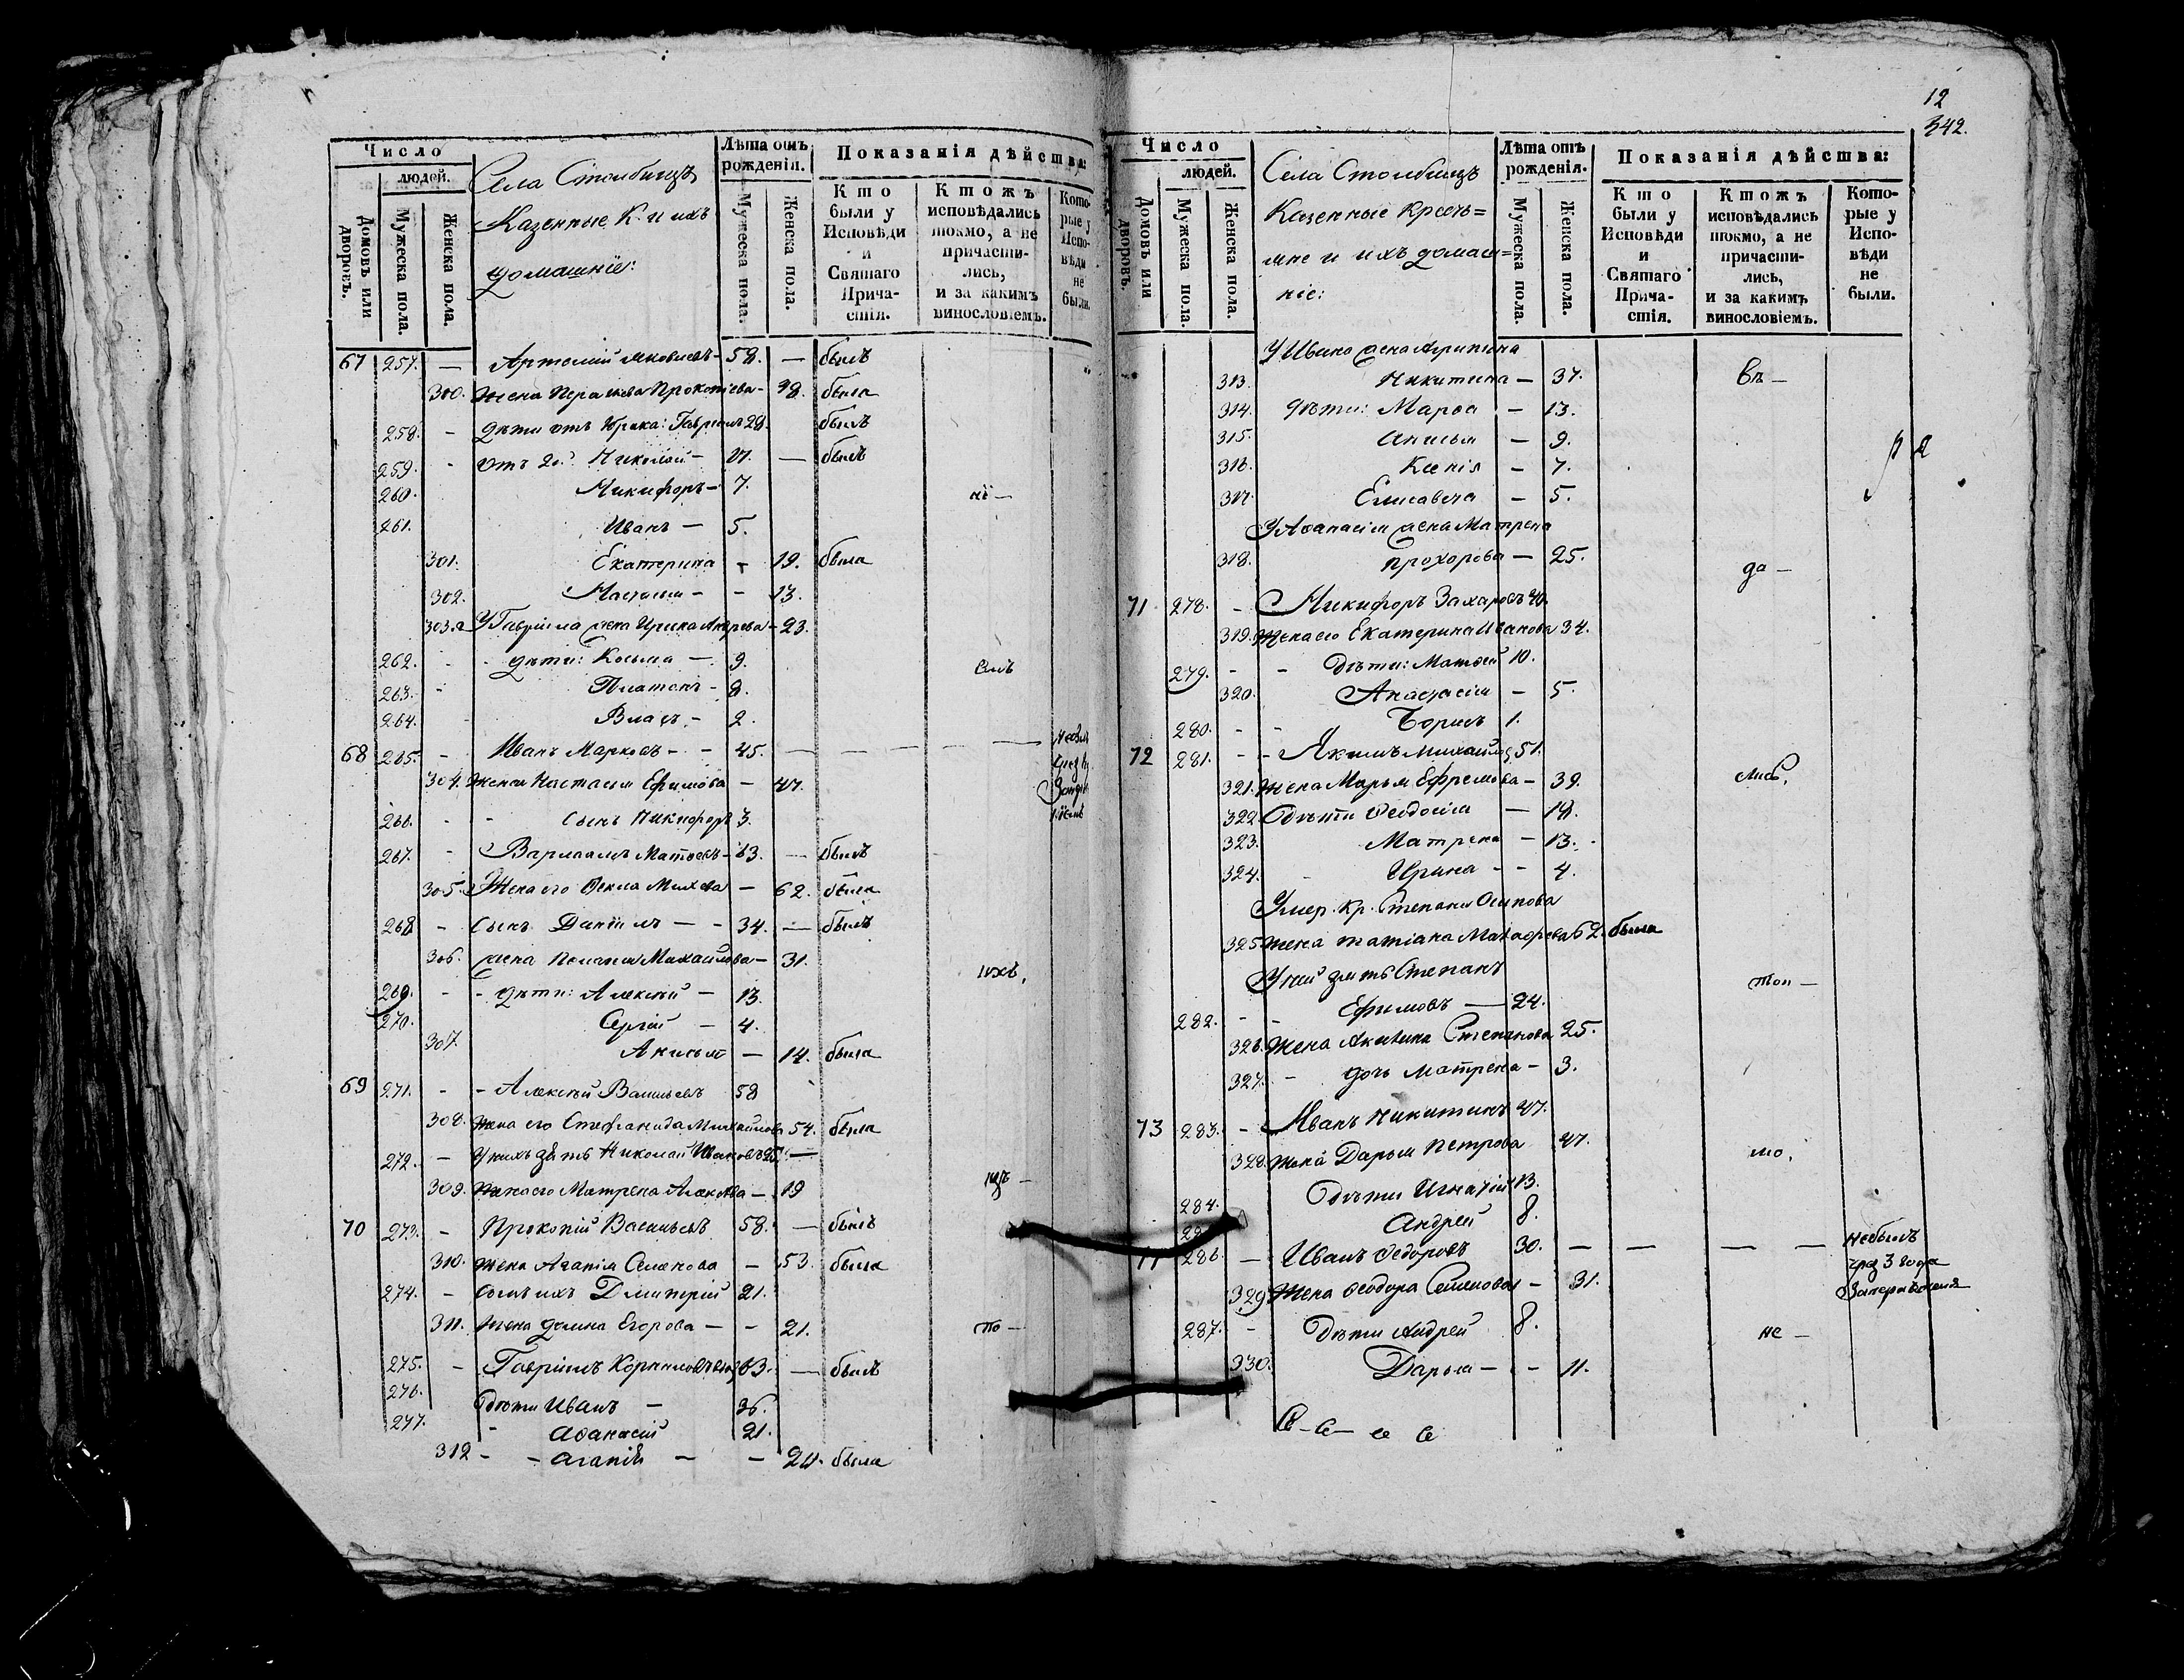 Число
людей.
Домовъ или дворовъ.
Мужеска пола.
Женска пола.
Села Столбищъ
Казенные К. и ихъ
домашніе:
Лѣта отъ рожденія.
Мужеска пола.
Женска пола.
Показанія дѣйства:
Кто были у Исповѣди и Святаго Причастія.
Ктожъ исповѣдались токмо, а не причастились, и за какимъ винословіемъ.
Которые у Исповѣди не были.
67 257. — Артемій Яковлевъ — 58. — былъ
300. жена Прокопіева — 48. была
258. - дѣти отъ брака: Гавріилъ 28. былъ
259. - отъ 2о. Николай — 17. — былъ
260. Никифоръ — 7.
261. Иванъ — 5.
301. Екатерина - 19. была
302. - - 13.
303. У Гавріила жена Ирина Андрева - 23.
262. - - дѣти: Косьма — 9.
263. - Платонъ - 8.
264. - Власъ - 2.
68 265. - Иванъ Марковъ - - 45. — — — —
304. жена Настасья Ефимова — 47.
266. - - сынъ Никифоръ 3.
267. - Варлаамъ Матѳевъ - 63. — былъ
305. Жена его Ѳекла — 62. была
268 - сынъ Даніилъ — - 34. — былъ
306. жена Михайлова — 31.
ихъ,
269. - - дѣти: Алексѣй — 13.
270. Сергій — 4.
307. Анисья — 14. была
69 271. - - Алексѣй Васильевъ 58
308. жена его Стефанида Михайлова 54. была
272. — У нихъ зять Николай 25. —
309. жена его Матрена Алексѣва — 19
70 273. - Прокопій Васильевъ 58. — былъ
310. жена Агапія Семенова — 53. была
274. - сынъ ихъ Дмитрій 21.
311. жена Домна Егорова — - 21.
то —
275. - Гавріилъ Корниловъ 63. — былъ
276. дѣти Иванъ — 36.
277. - Аѳанасій 21.
312 - - Агапія — — 24. была
12
342.
Число
людей.
Домовъ или дворовъ.
Мужеска пола.
Женска пола.
Села Столбищъ
Казенные кресть=
яне и ихъ домаш=
ніе:
Лѣта отъ рожденія.
Мужеска пола.
Женска пола.
Показанія дѣйства:
Кто были у Исповѣди и Святаго Причастія.
Ктожъ исповѣдались токмо, а не причастились, и за какимъ винословіемъ.
Которые у Исповѣди не были.
У Ивана жена Агрипина
313. Никитина — 37.
въ —
314. дѣти: Марѳа — 13.
315. Анисья — 9.
316. Ксенія — 7.
317. Елисавета — 5.
У Аѳанасія жена Матрена
318. Прохорова — 25.
да —
71 278. - Никифоръ Захаровъ 40.
319. Жена его Екатерина Иванова 34.
279. - - Дѣти: Матѳей 10.
320. Анастасія — 5.
280. - - Борисъ 1.
72 281. - - Якимъ Михайло 51.
321. жена Марья Ефремова — 39.
322 Дѣти Ѳеодосія — 18.
323. Матрена — 13.
324. - Ирина - - 4.
Умер. кр. Степана Осипова
325. жена Татіана 62. была
У ней зять Степанъ
282. - - Ефимовъ — 24.
326. жена Акилина Степанова 25.
327. - дочь Матрена — 3.
73 283. - Иванъ Никитинъ 47.
328. жена Дарья Петрова 47.
284. Дѣти Игнатій 13.
Андрей 8.
286 — Иванъ Ѳедоровъ 30. — — — — не былъ
чрез 3 года
329 Жена Ѳеодора Семенова — 31.
287. - Дѣти Андрей 8.
не —
330. Дарья — - 11.